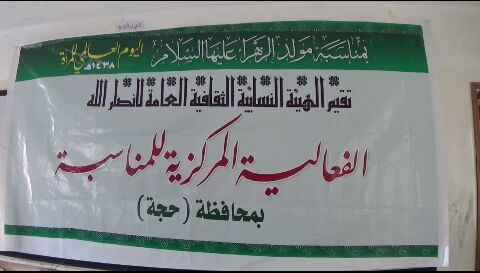 بمناسبة مولد الزهراء عليها السلام
اليوم العالمي للمرأة
١٤٣٨هـ
تقيم الهيئة النسائية الثقافية العامة لأنصار الله
الفعالية المركزية للمناسبة
بمحافظة (حجة)